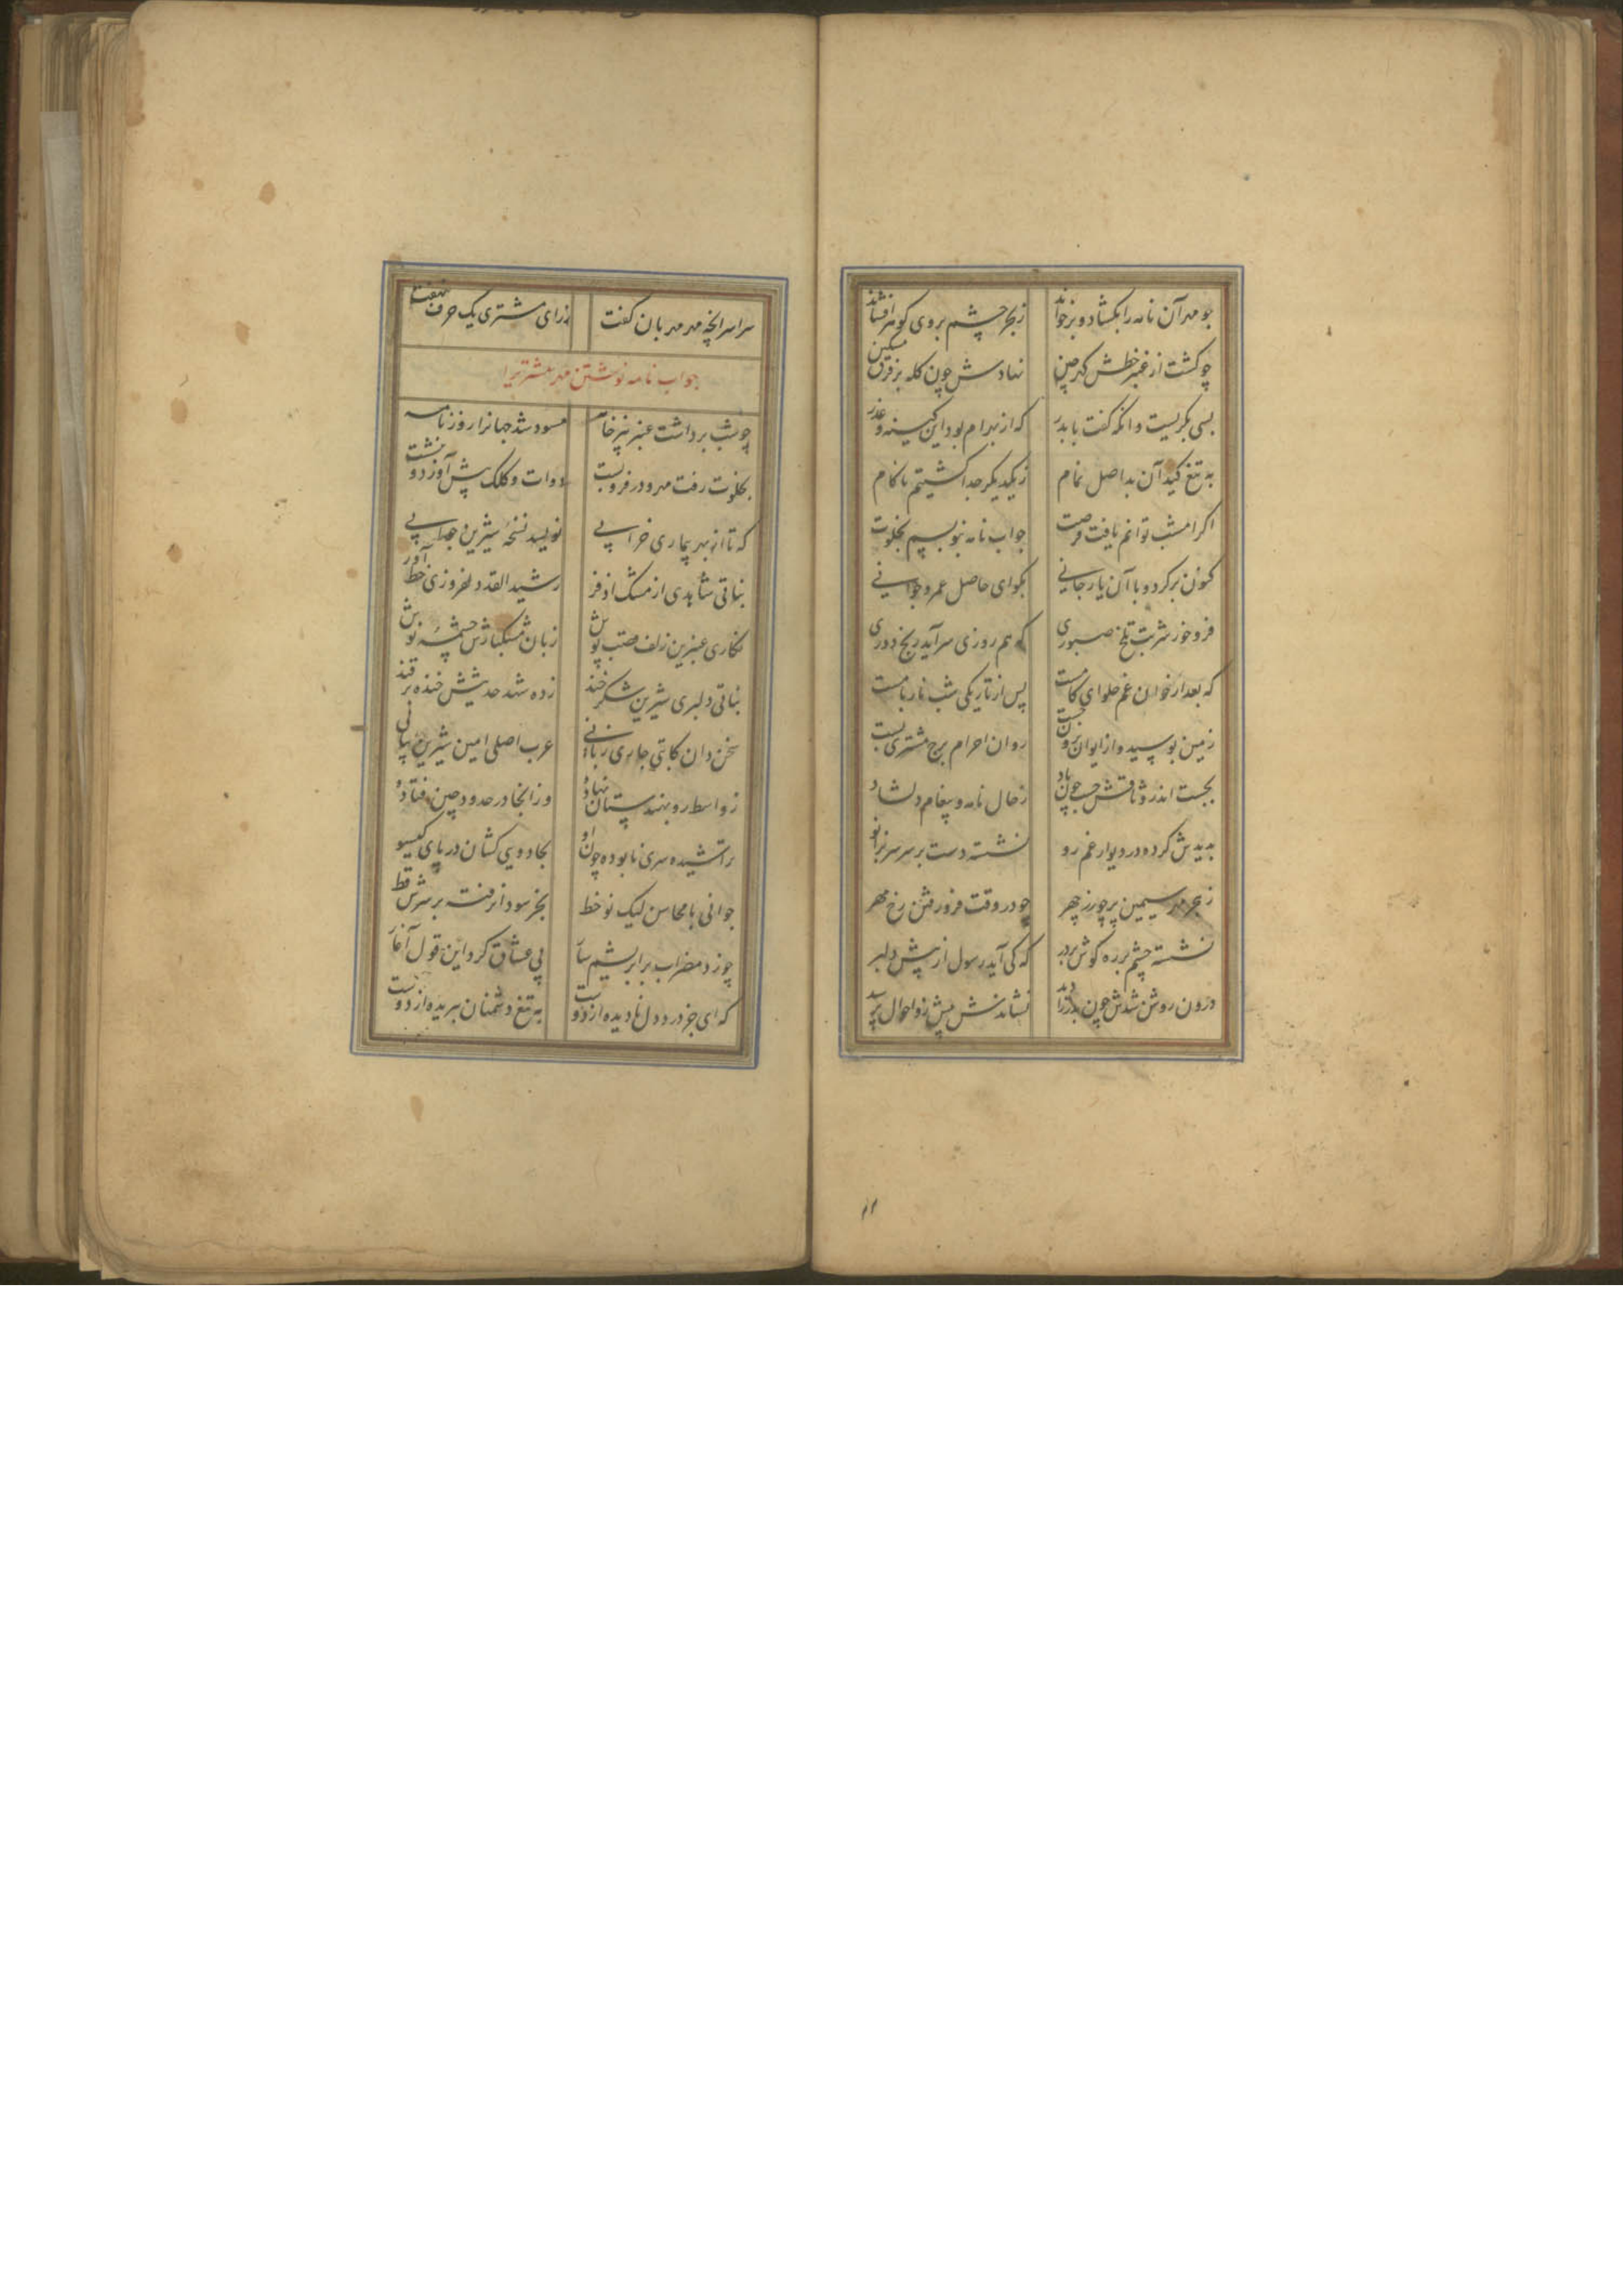 چو مهر آن نامه را بکشاد و برخواند ز بحر چشم بر وی گوهر افشاند
چو کشت از عنبر خطش گهرچین نهادش چون کله بر فرق مسکین
بسی بکریست وانکه گفت با بدر که از بهرام بود این کینه و غدر
به تیغ کید آن بد اصل نمام ز یکدیگر جدا کشتیم ناکام
اکر امشب توانم یافت فرصت جواب نامه بنویسم بخلوت
کنون برکرد و با آن یار جانی بکو ای حاصل عمر و جوانی
فرو خور شربت تلخ صبوری که هم روزی سرآید رنج دوری
که بعد از خوان غم حلوای کامست پس از تاریکی شب نار بامست
زمین بوسید و از ایوان برون جست روان احرام برج مشتری بست
بجست اندر وثاقش جست چون باد ز حال نامه و پیغام دلشاد
بدیدش کرده در دیوار غم رو نشسته دست بر سر سر بزانو
ز بحر مهر سیمین بر چو زر چهر چو در وقت فرو رفتن رخ مهر
نشسته چشم بر ره کوش بر در که کی آید رسول از پیش دلبر
درون روشن شدش چون بدر را دید نشاندش پیش زو احوال پرسید
۱۲
سراسر انچه مهر مهربان کفت ز رای مشتری یک حرف ننهفت
جواب نامه نوشتن مهر مشتریرا
چو شب برداشت عنبر نیز خامه مسود شد جهانرا روزنامه
بخلوت رفت مهر و در فرو بست دوات و کلک پیش آورد و بنشست
که تا از بهر بیماری خرابی نویسد نسخه شیرین جوابی
نباتی شاهدی از مشک اذفر رشید القد دلفروزی خط آور
نکاری عنبرین زلف قصب پوش زبان مشکبارش چشمه نوش
نباتی دلبری شیرین شکرخند زده شهد حدیثش خنده بر قند
سخن دان کاتبی جاری زبانی عرب اصلی امین شیرین بیانی
ز واسط رو بهندستان نهاده وز انجا در حدود چین فتاده
تراشیده سری نابوده چون او بجادویی کشان در پای کیسو
جوانی با محاسن لیک نو خط بجز سودا نرفته بر سرش قط
چو زد مضراب بر ابریشم ساز پی عشاق کرد این قول آغاز
که ای جز درد دل نادیده از دوست به تیغ دشمنان ببریده از دوست